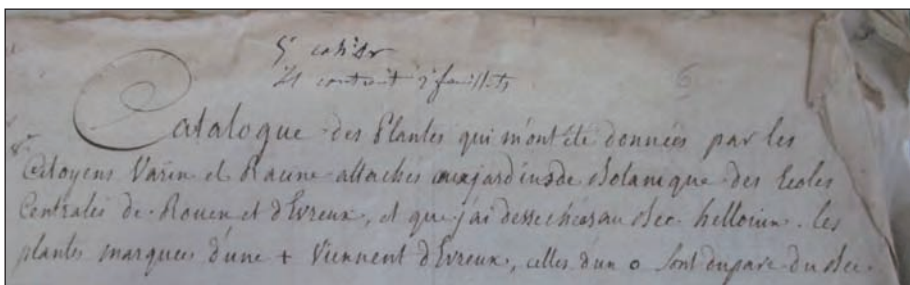 5e cahier
il contient 2 feuillets
6
Catalogue des Plantes qui m'ont été données par les
Citoyens Varin et Raune attachés aux jardins de Botanique des Ecoles
Centrales de Rouen et d'Evreux, et que j'ai desséchées au Bec hellouin. les
plantes marquées d'une + viennent d'Evreux, celles d'un o sont du parc du Bec.